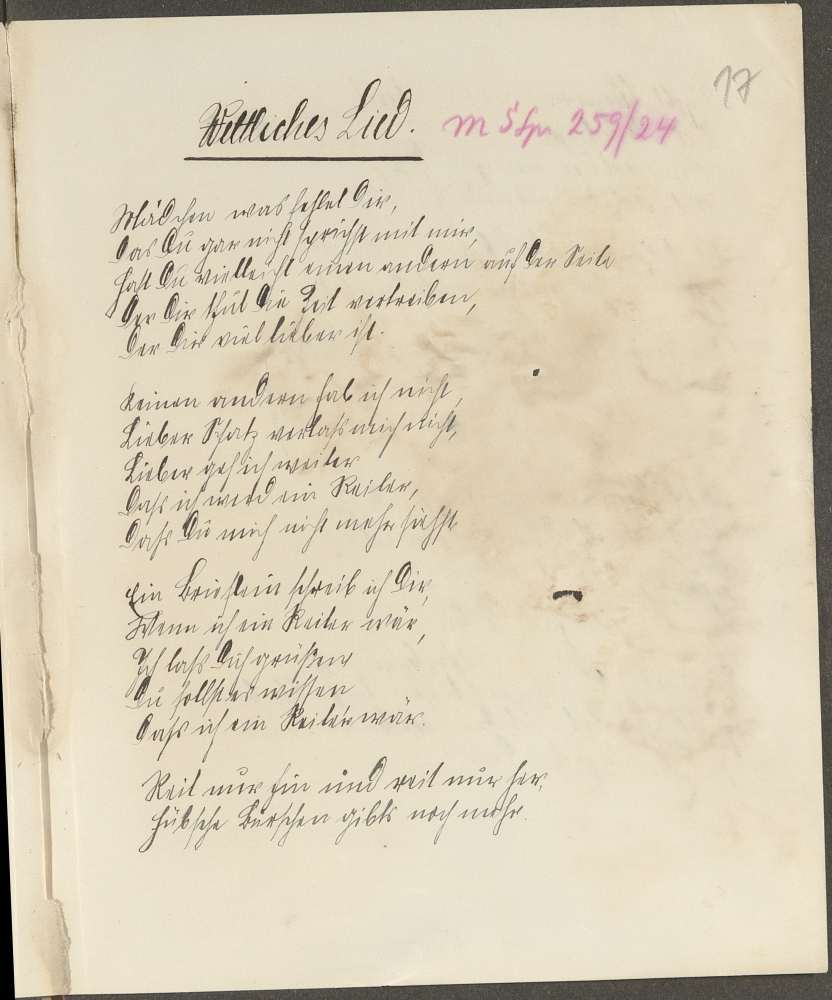 17
Weltliches Lied. m Stfr 259/24
Mädchen was fehlet Dir,
Das Du gar nicht sprichst mit mir,
Hast Du vielleicht einen andern auf der Seite
Der Dir thut die Zeit vertreiben,
Der Dir viel lieber ist.
Keinen andern hab ich nicht,
Lieber Schatz verlass mich nicht,
Lieber geh ich weiter
Dass ich werd ein Reiter,
Dass Du mich nicht mehr siehst
Ein Brieflein schreib ich Dir,
Wenn ich ein Reiter wär,
Ich lass Dich grüßen
Du sollst es wissen
Dass ich ein Reiter wär.
Reit nur hin und reit nur her,
Hübsche Burschen gibts noch mehr.